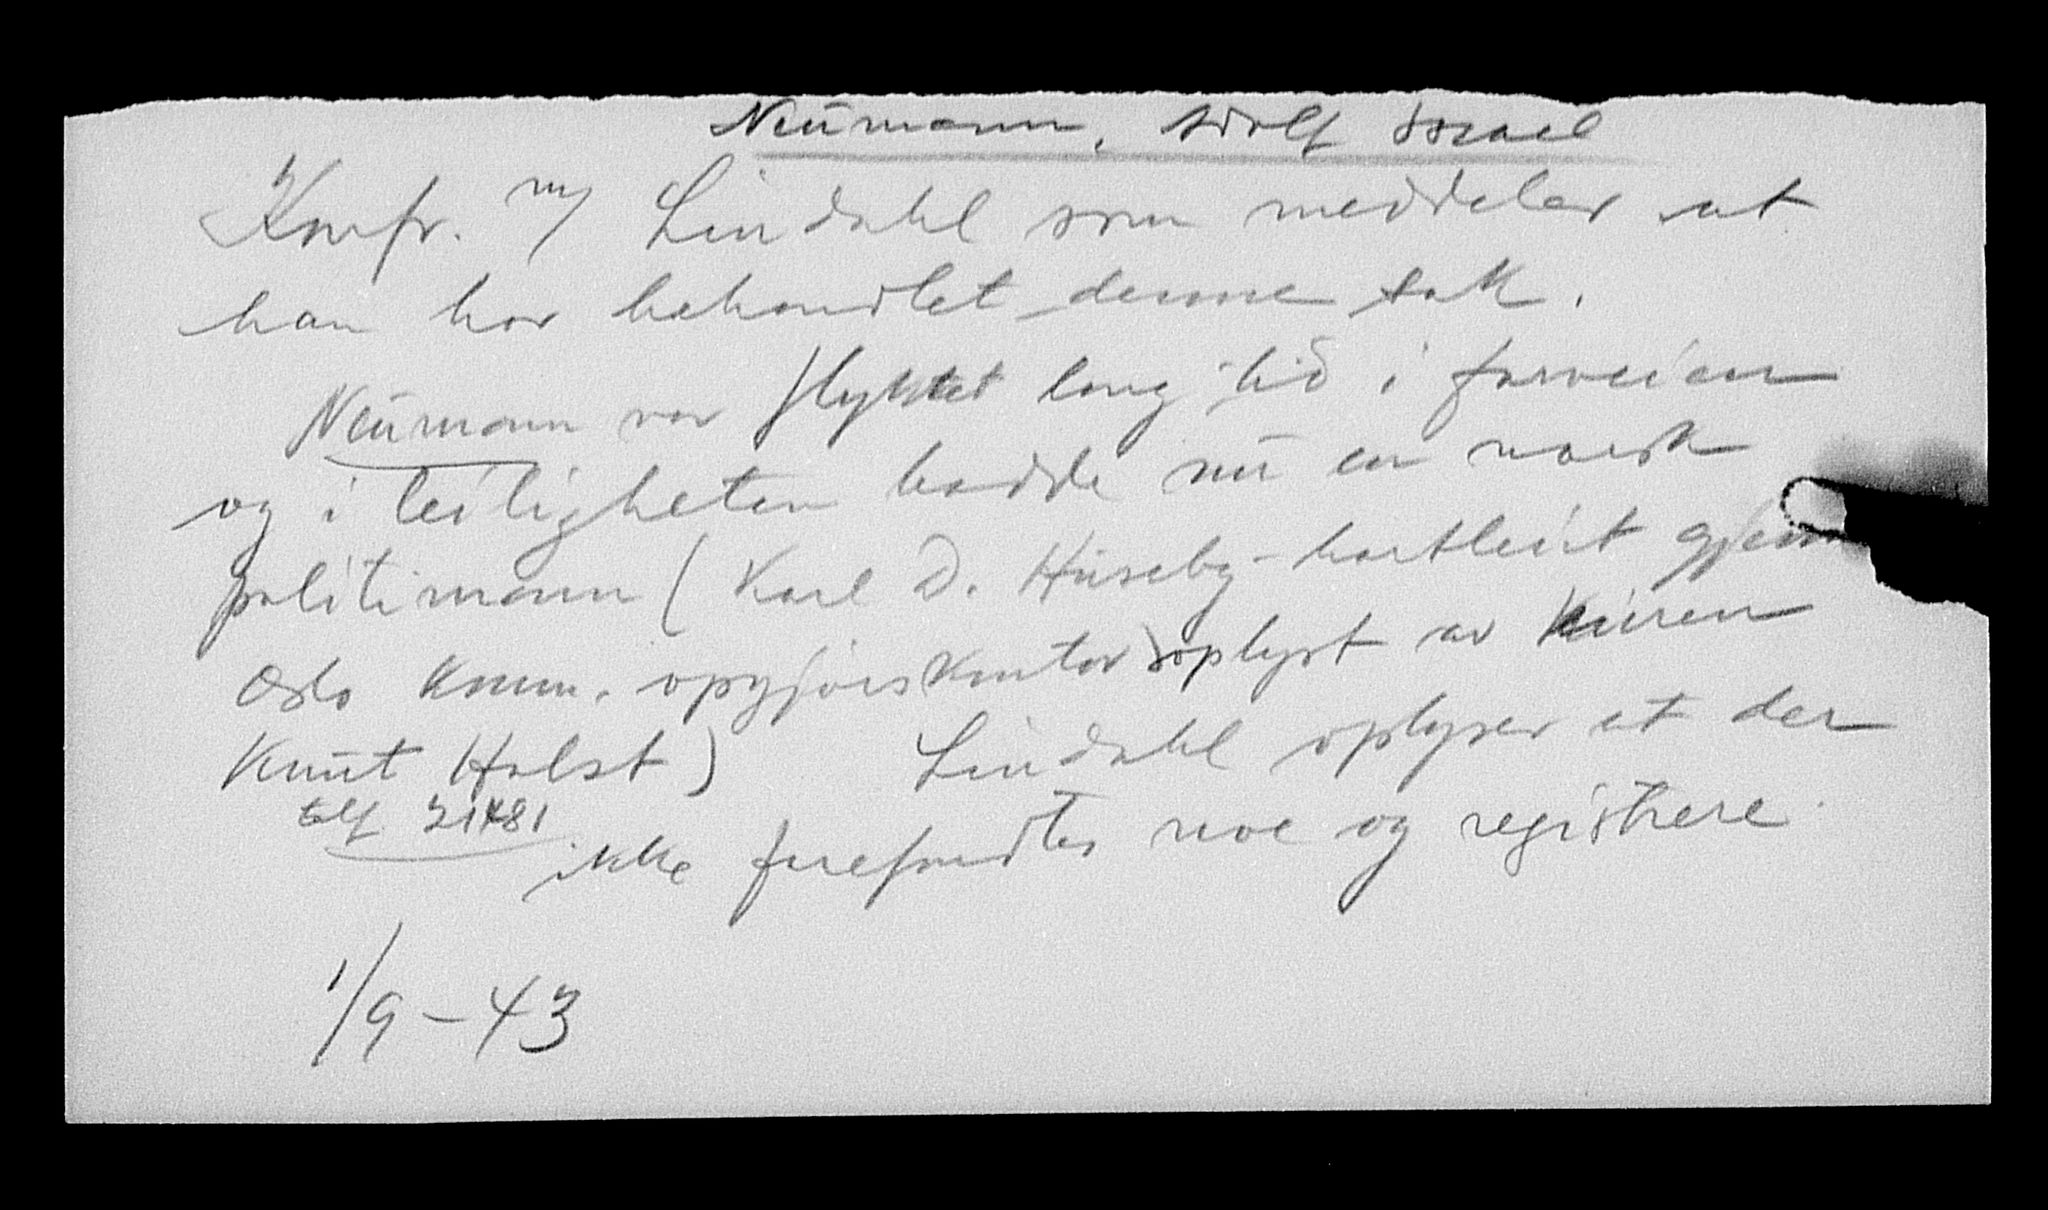 Neumann, Adolf Israel
Konfr. m/ Lindahl som meddeler at
han har behandlet denne sak.
Neumann var flyktet lang tid i forveien
og i leiligheten hadde nu en norsk
politimann (Karl D. Huseby - bortleiet gjen
Oslo komm. opgjørskontor oplyst av
Knut Holst) Lindahl oplyser at der
telf 21481
ikke forefandtes noe og registrere.
1/9-43